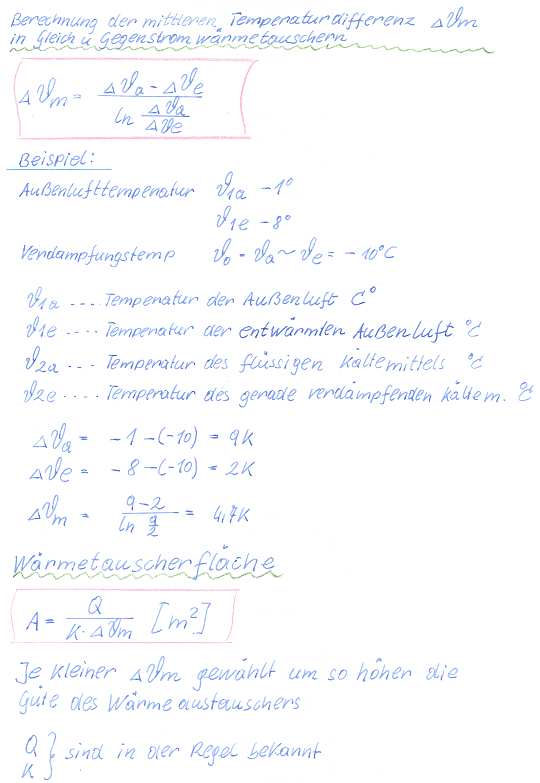 Berechnung der mittleren Temperaturdifferenz Δϑm
in Gleich u Gegenstromwärmetauschern
Δϑm = (Δϑa - Δϑe) / (ln Δϑa/Δϑe)
Beispiel:
Außenlufttemperatur ϑ1a -1°
ϑ1e -8°
Verdampfungstemp ϑo = ϑa ~ ϑe = -10°C
ϑ1a .... Temperatur der Außenluft C°
ϑ1e .... Temperatur der entwärmten Außenluft °C
ϑ2a ... Temperatur des flüssigen Kältemittels °C
ϑ2e .... Temperatur des gerade verdampfenden Kältem. °C
Δϑa = -1-(-10) = 9K
Δϑe = -8-(-10) = 2K
Δϑm = (9-2) / (ln 9/2) = 4,7K
Wärmetauscherfläche
A = Q / (K · Δϑm) [m²]
Je kleiner Δϑm gewählt um so höher die
Güte des Wärmeaustauschers
Q
K } sind in der Regel bekannt